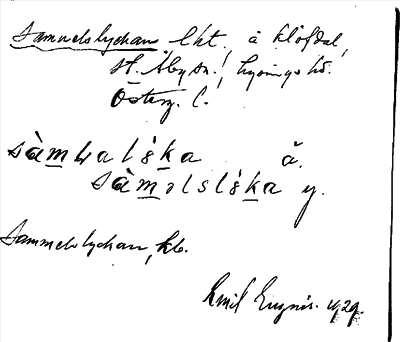 Sammelslyckan lht. å Klöfdal,
St. Åby sn., Lysings hd.
Österg. l.
sàmɩalìka ä.
sàmɔlslìka y.
Sammelslyckan, kb.
Emil 1929.